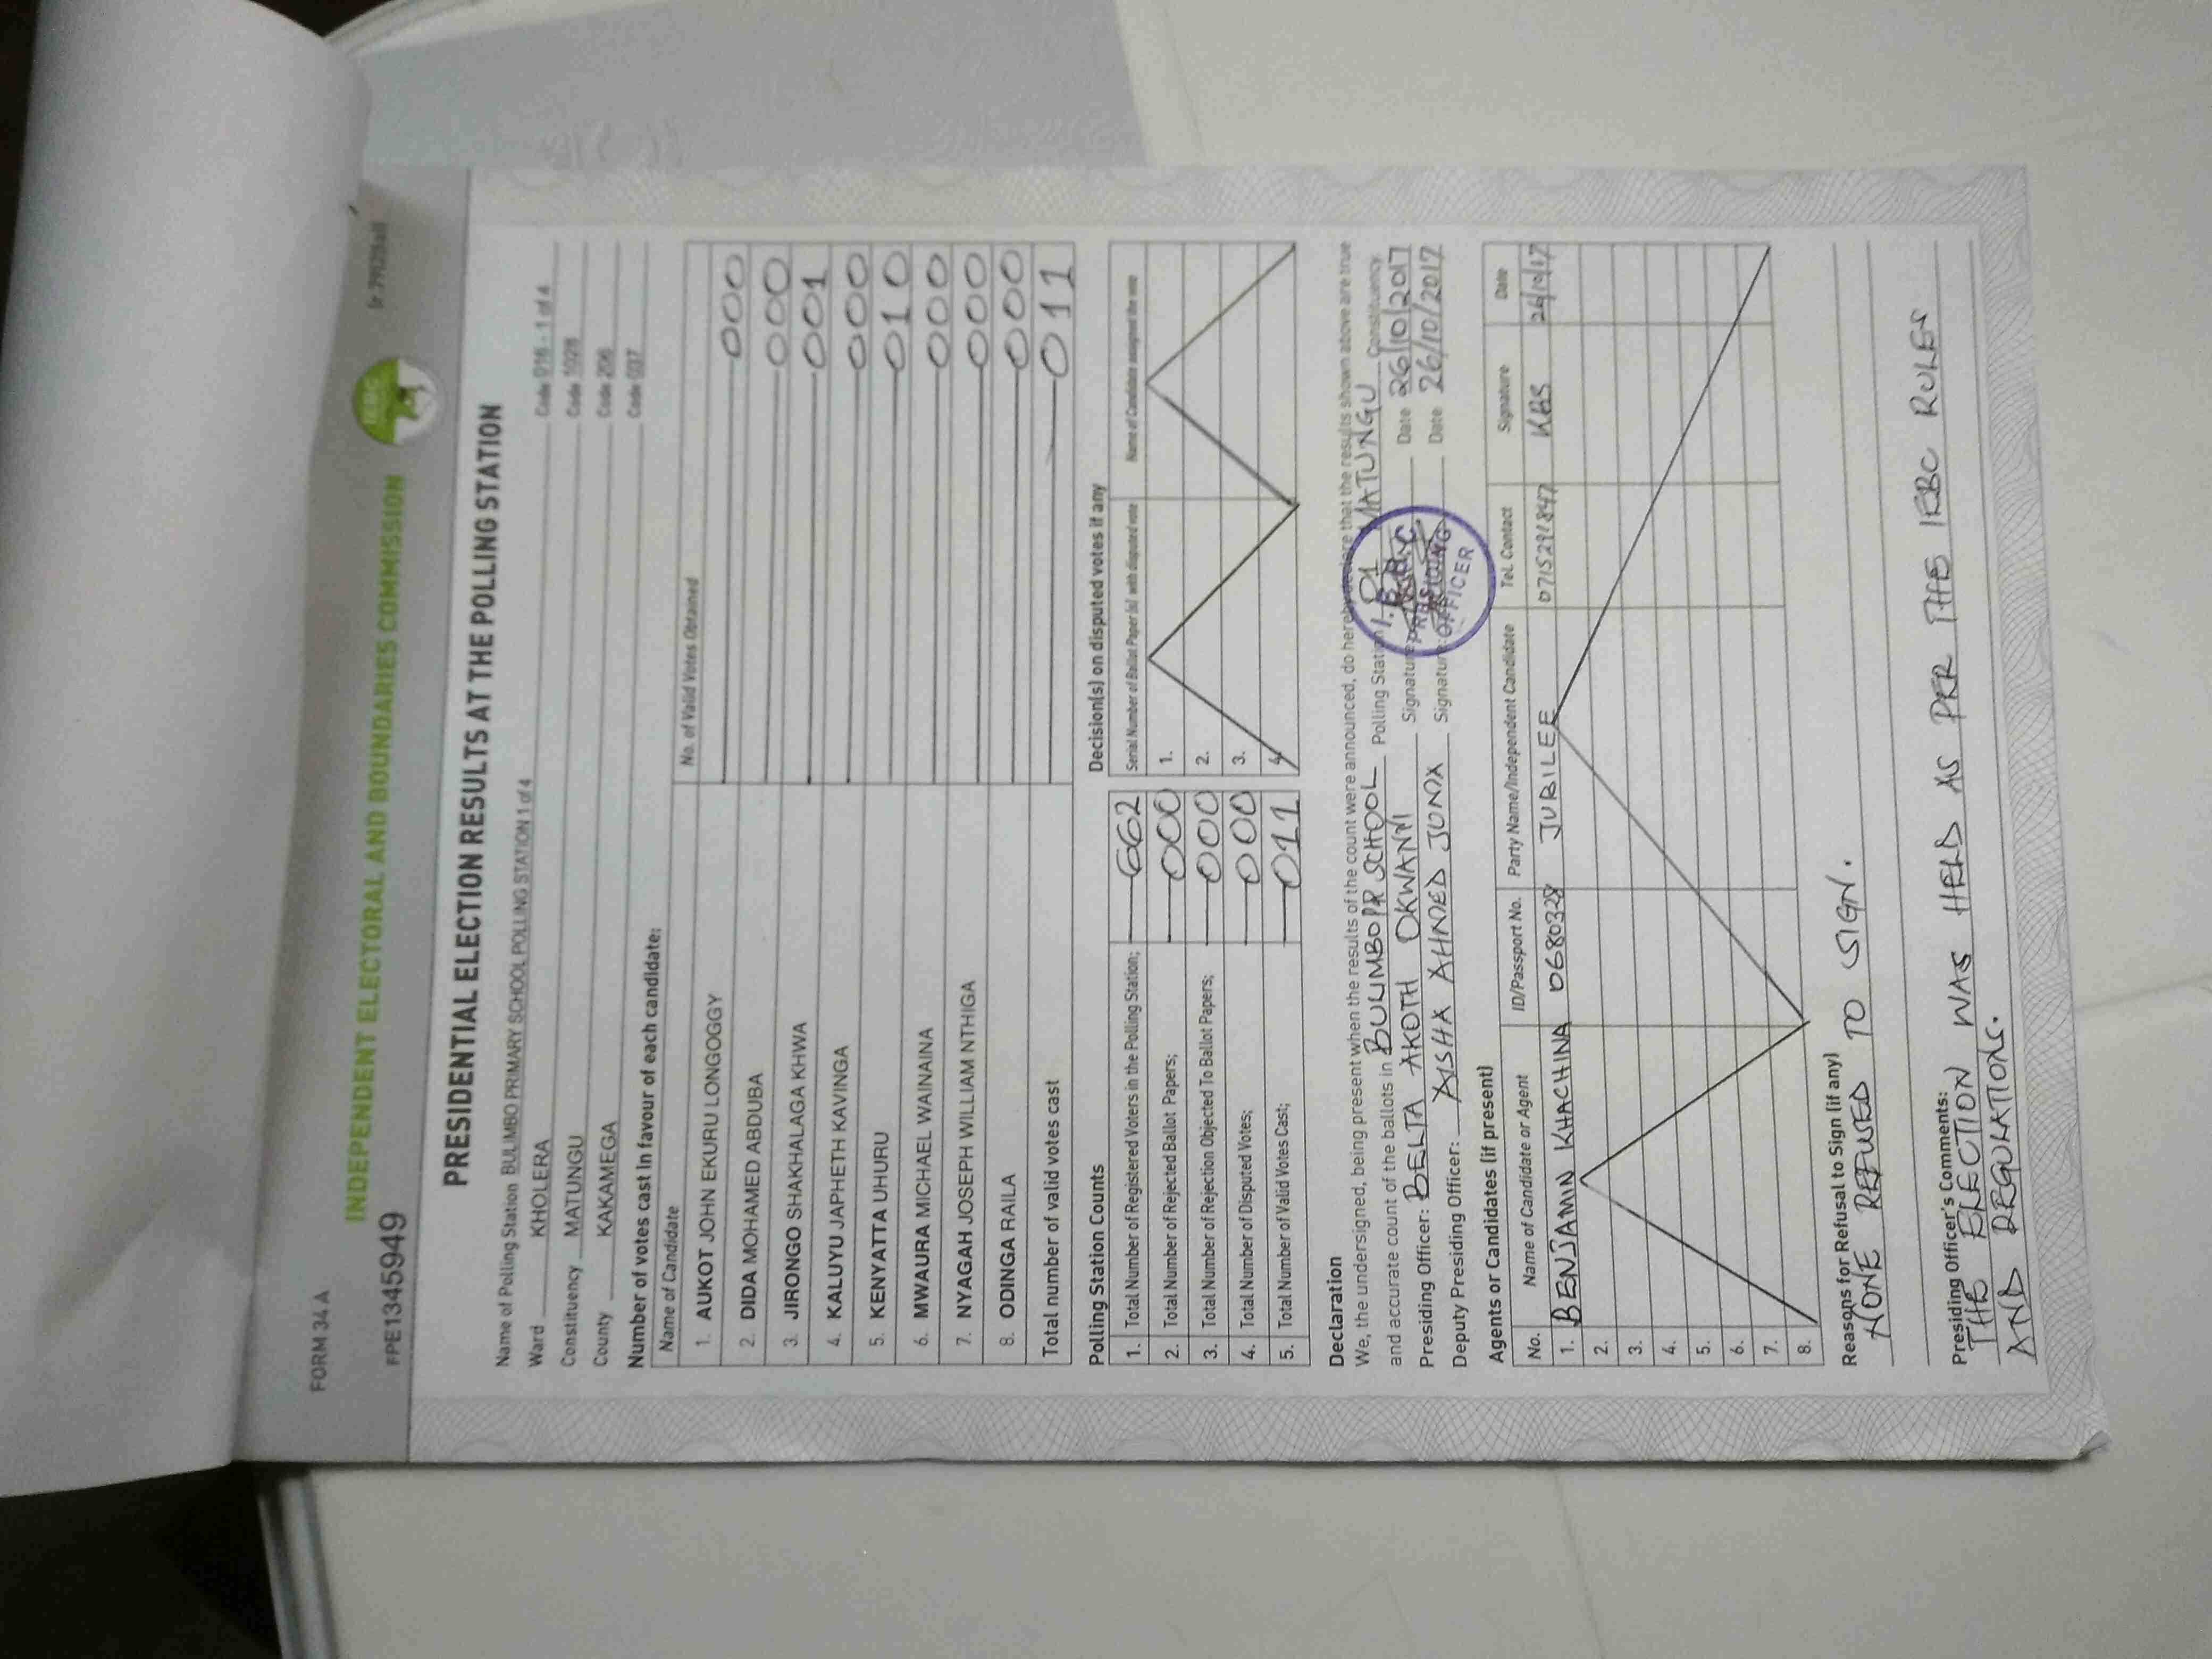 FORM 34 A
INDEPENDENT ELECTORAL AND BOUNDARIES COMMISSION
IEBC
FPE1345949
PRESIDENTIAL ELECTION RESULTS AT THE POLLING STATION
Name of Polling Station BULIMBO PRIMARY SCHOOL POLLING STATION 1 of 4 Code 016 - 1 of 4
Ward KHOLERA Code 1028
Constituency MATUNGU Code 206
County KAKAMEGA Code 037
Number of votes cast in favour of each candidate:
Name of Candidate No. of Valid Votes Obtained
1. AUKOT JOHN EKURU LONGOGGY 000
2. DIDA MOHAMED ABDUBA 000
3. JIRONGO SHAKHALAGA KHWA 001
4. KALUYU JAPHETH KAVINGA 000
5. KENYATTA UHURU 010
6. MWAURA MICHAEL WAINAINA 000
7. NYAGAH JOSEPH WILLIAM NTHIGA 000
8. ODINGA RAILA 000
Total number of valid votes cast 011
Polling Station Counts
1. Total Number of Registered Voters in the Polling Station; 662
2. Total Number of Rejected Ballot Papers; 000
3. Total Number of Rejection Objected To Ballot Papers; 000
4. Total Number of Disputed Votes; 000
5. Total Number of Valid Votes Cast; 011
Decision(s) on disputed votes if any
Serial Number of Ballot Paper (s) with disputed vote Name of Candidate assigned the vote
1.
2.
3.
4.
Declaration
We, the undersigned, being present when the results of the count were announced, do hereby declare that the results shown above are true
and accurate count of the ballots in BULIMBO PR SCHOOL Polling Station 01 MATUNGU Constituency
Presiding Officer: BELTA AKOTH OKWANYI Signature: Date 26/10/2017
Deputy Presiding Officer: AISHA AHMED JUMA Signature: Date 26/10/2017
I.E.B.C
PRESIDING
OFFICER
Agents or Candidates (if present)
No. Name of Candidate or Agent ID/Passport No. Party Name/Independent Candidate Tel. Contact Signature Date
1. BENJAMIN KHACHINA 0680328 JUBILEE 0715291847 KBS 26/10/17
2.
3.
4.
5.
6.
7.
8.
Reasons for Refusal to Sign (if any)
NONE REFUSED TO SIGN.
Presiding Officer's Comments:
THE ELECTION WAS HELD AS PER THE IEBC RULES
AND REGULATIONS.